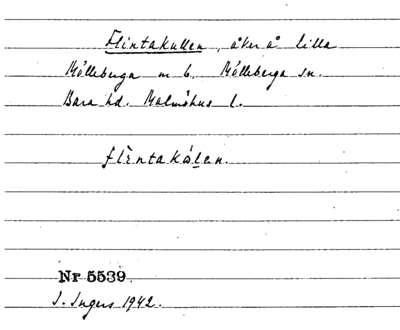 Flintakullen, åker å lilla
Mölleberga m b. Mölleberga sn.
Bara hd. Malmöhus l.
flèntakɷlen.
Nr 5539
I. Ingers 1942.